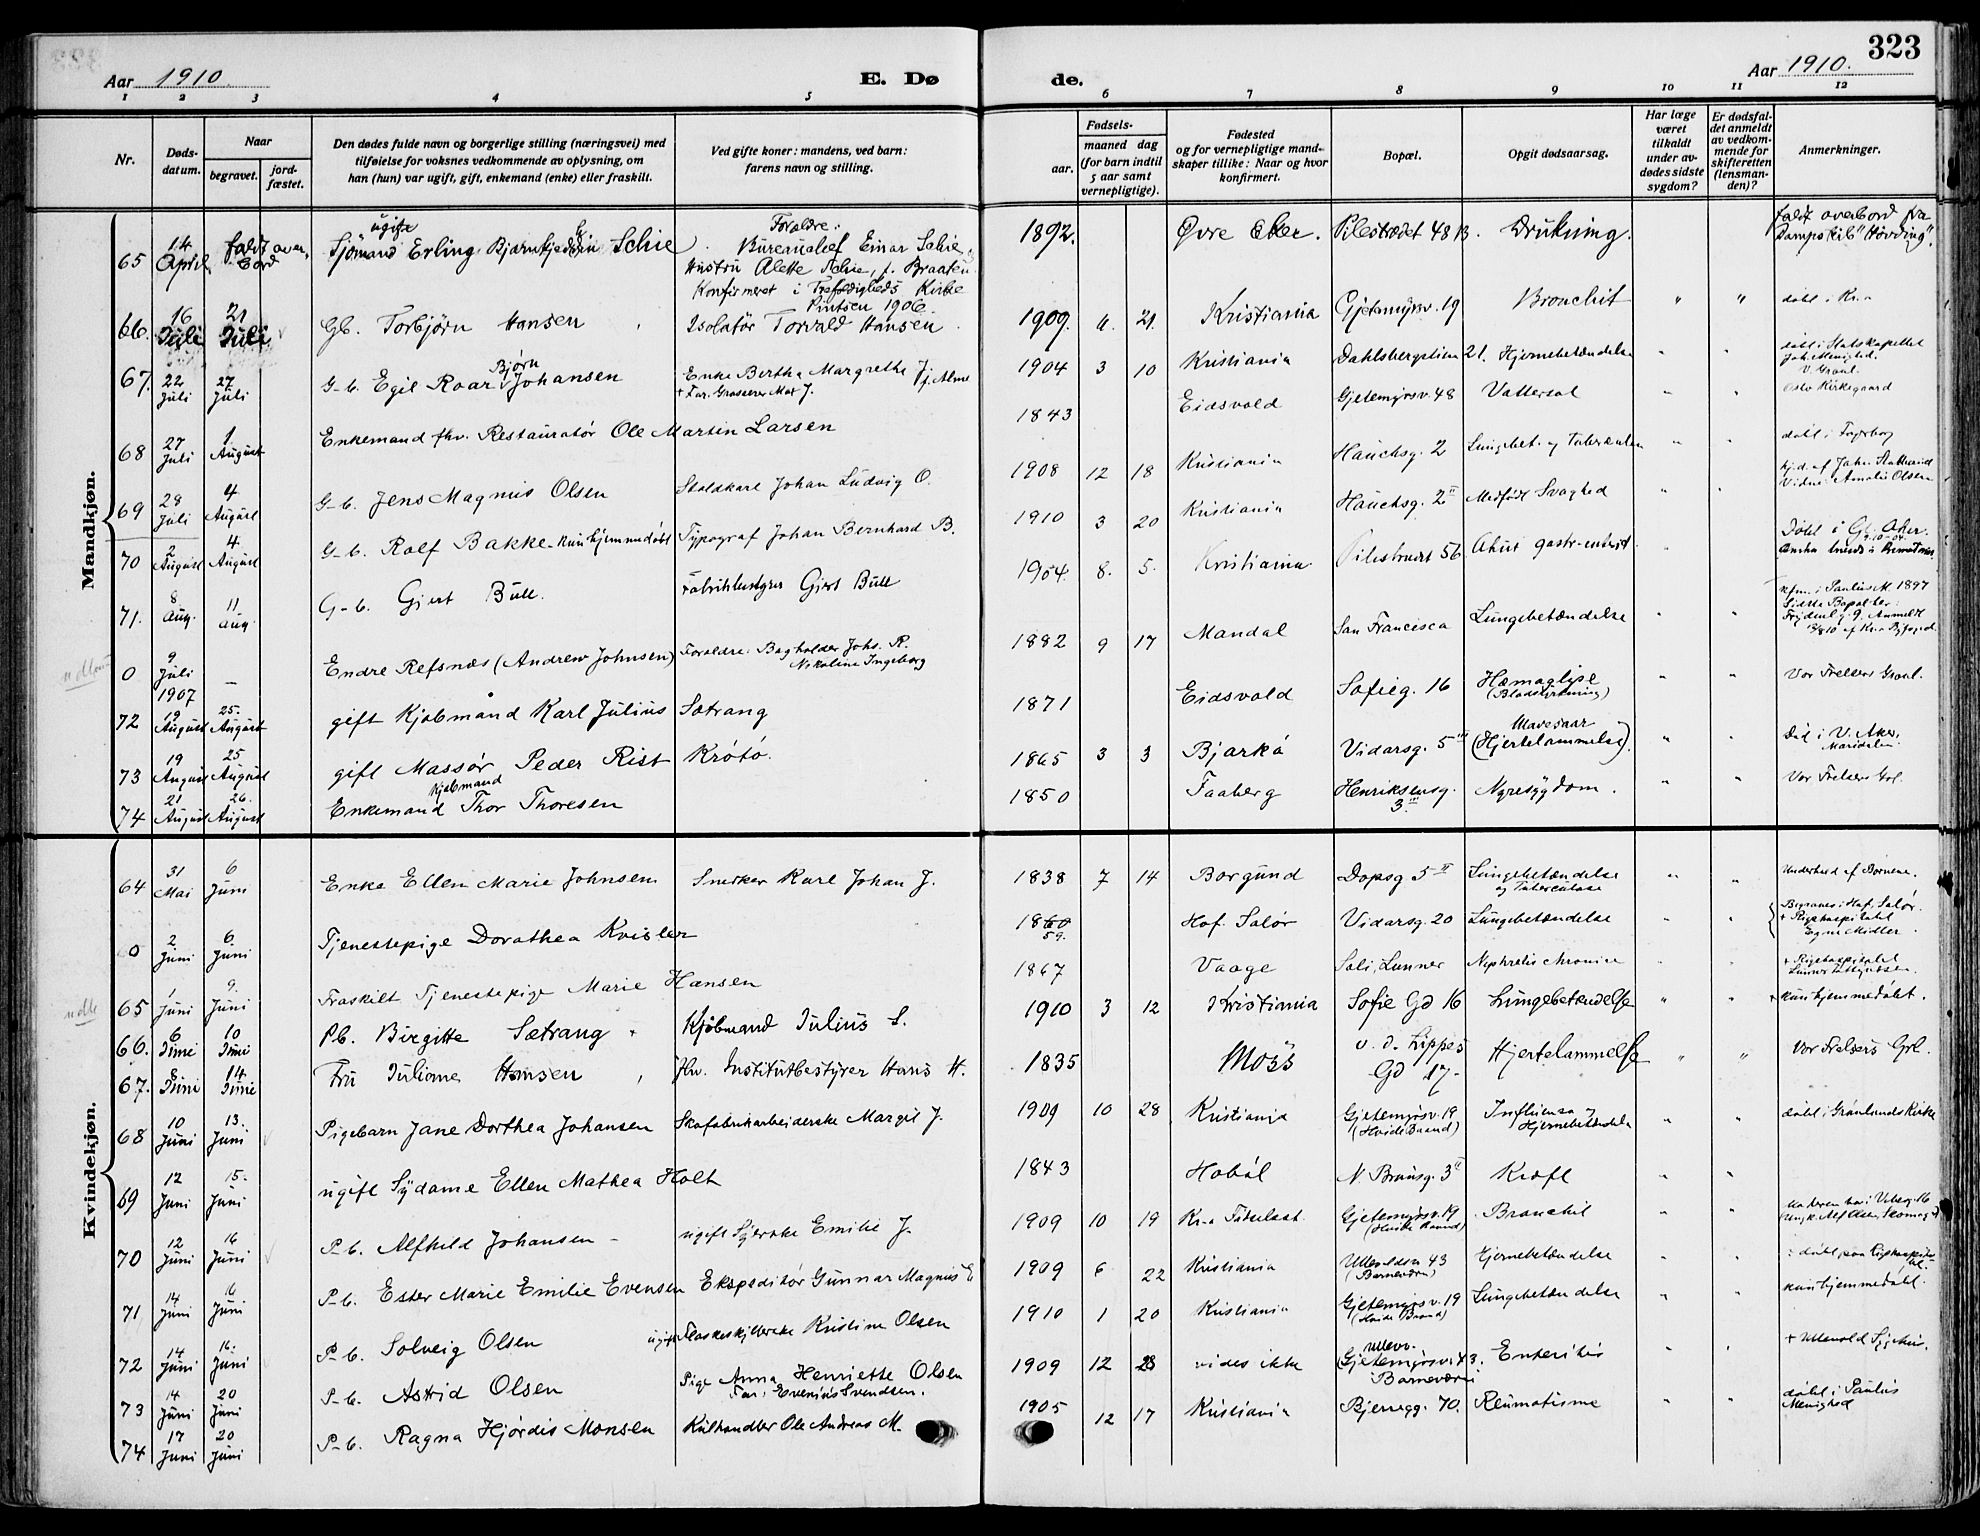 323
Aar 1910. E. Dø de. Aar 1910.
1 2 3 4 5 6 7 8 9 10 11 12
Nr.
Dødsdatum.
Naar
begravet.
jordfæstet.
Den dødes fulde navn og borgerlige stilling (næringsvei) med
tilføielse for voksnes vedkommende av oplysning, om
han (hun) var ugift, gift, enkemand (enke) eller fraskilt.
Ved gifte koner: mandens, ved barn:
farens navn og stilling.
Fødsels-
aar.
maaned dag
(for barn indtil
5 aar samt
vernepligtige).
Fødested
og for vernepligtige mand-
skaper tillike: Naar og hvor
konfirmert.
Bopæl.
Opgit dødsaarsag.
Har læge
været
tilkaldt
under av-
dødes sidste
sygdom?
Er dødsfal-
det anmeldt
av vedkom-
mende for
skifteretten
(lensman-
den)?
Anmerkninger.
Mandkjøn.
65 14 April faldt over bord ugift Sjömand Erling Schie Forældre: Bureauchef Einar Schie, Hustru Alette Schie, f. Braaten Konfirmeret i Trefoldigheds Kirke 1906. 1892. Øvre Eker. Pilestrædet 48 B. Drukning. faldt overbord fra Dampskib "Hövding".
66. 16 Juli 21 Juli Gb. Torbjørn Hansen Isolatør Torvald Hansen 1909. 6. 21. Kristiania Gjetemyrsv. 19 Bronchit " " döbt i Kr.a
67. 22 Juli 27 Juli G-b. Egil Roar Bjørn Johansen Enke Bertha Margrethe J. f. Alme + Far. Grosserer Max J. 1904 3 10 Kristiania Dahlsbergstien 21. Hjernebetændelse " " döbt i Slotskapellet Joh. Menighed. V. Gravl.
68 27 Juli 1 August Enkemand fhv. Restauratør Ole Martin Larsen 1843 Eidsvold Gjetemyrsv. 48 Vattersot " " Oslo Kirkegaard
69 28 Juli 4 August G-b. Jens Magnus Olsen Staldkarl Johan Ludvig O. 1908 12 18 Kristiania Hauchsg. 2 Lungebet. og Tuberculose " " döbt i Fagerborg
70 2 August 4 August G-b. Rolf Bakke - kun hjemmedøbt Typograf Johan Bernhard B. 1910 3 20 Kristiania Hauchsg. 2 II Medfødt Svaghed " " hj.d. af Amalie Olsen
71. 8 Aug. 11 Aug. G-b. Gjert Bull. Fabrikbestyrer Gjert Bull 1904. 8. 5. Kristiania Pilestrædet 56. Akut gastr-enterit. " " Döbt i Gl. Aker.
0 9 Juli 1907 — Endre Refsnæs (Andrew Johnsen) Forældre: Bagholder Johs. R. Nikoline Ingeborg 1882 9 17 Mandal San Francisca Lungebetændelse " " Kfm. i Paulus M. 1897 Sidste Bopæl her: Frydenlg. 9. Anmeldt 13/8 10 af Kr.a Byfoged.
72 19 August 25. August gift Kjøbmand Karl Julius Sætrang 1871 Eidsvold Sofieg. 16 Hæmaglyse " " Vor Frelsers Gravl.
73 19 August 25 August gift Massør Peder Rist Krötö. 1865 3 3 Bjarkö Vidarsg. 5 III Mavesaar (Hjertelammelse). " " Död i V. Aker, Maridalen.
74 21 August 26. August Enkemand Kjøbmand Thor Thoresen 1850 Faaberg Henriksensg. 3 III Nyresygdom. " " Vor Frelsers Grl.
Kvindekjøn.
64 31 Mai 6 Juni Enke Ellen Marie Johnsen Snedker Karl Johan J. 1838 7 14 Borgund Dopsg 5 II Lungebetændelse og Tuberculose " " Underhold af Børnene.
0 2 Juni 6. Juni Tjenestepige Dorothea Kvisler 1860 59. Hof. Solør Vidarsg. 20 Lungebetændelse " " Begraves i Hof, Solør. + Rigshospitalet Egne Midler.
65 1 Juni 9. Juni Fraskilt Tjenestepige Marie Hansen 1867 Vaage Sali, Lunner Nephritis chronica " " + Rigshospitalet
66. 6 Juni 10 Juni Pb. Birgitte Sætrang Kjøbmand Julius S. 1910 3 12 Kristiania Sofie Gd 16 Lungebetændelse " " kun hjemmedøbt.
67. 8 Juni 14 Juni Fru Juliane Hansen fhv. Institutbestyrer Hans H. 1835 Moss v. d. Lippes Gd 17- Hjertelammelse " " Vor Frelsers Grl.
68 10 Juni 13. Juni Pigebarn Jane Dorthea Johansen Skofabrikarbeiderske Margit J. 1909 10 28 Kristiania Gjetemyrsv. 19 (Hvide Baand) Influensa Hjernebetændelse " " døbt i Grønlands Kirke
69 12 Juni 15. Juni ugift Sydame Ellen Mathea Holt 1843 Hobøl N. Brunsg. 3 II Kræft " "
70 12 Juni 16 Juni P-b. Alfhild Johansen - ugift Syerske Emilie J. 1909 10 19 Kr.a Fødselsst. Gjetemyrsv. 19 (Hvite Baand) Bronchit " "
71 14 Juni 16 Juni P-b. Ester Marie Emilie Evensen Ekspeditør Gunnar Magnus E 1909 6 22 Kristiania Ullevoldsv 43 (Barneværn) Hjernebetændelse " " døbt paa Rigshospitalet.
72 14 Juni 16. Juni P-b. Solveig Olsen ugift Flaskeskyllerske Kristine Olsen 1910 1 20 Kristiania Gjetemyrsv. 19 (Hvide Baand) Lungebetændelse " " kun hjemmedøbt.
73 14 Juni 20 Juni P-b. Astrid Olsen Pige Anna Henriette Olsen Far: Evenius Svendsen. 1909 12 28 vides ikke Ullevv. Gjetemyrsv. 43. i Barneværn Enteritis " " + Ullevold Sygehus.
74 17 Juni 20 Juni P-b. Ragna Hjørdis Monsen Kulhandler Ole Andreas M. 1905 12 17 Kristiania Bjerregg. 70. Reumatisme " " døbt i Paulus Menighed